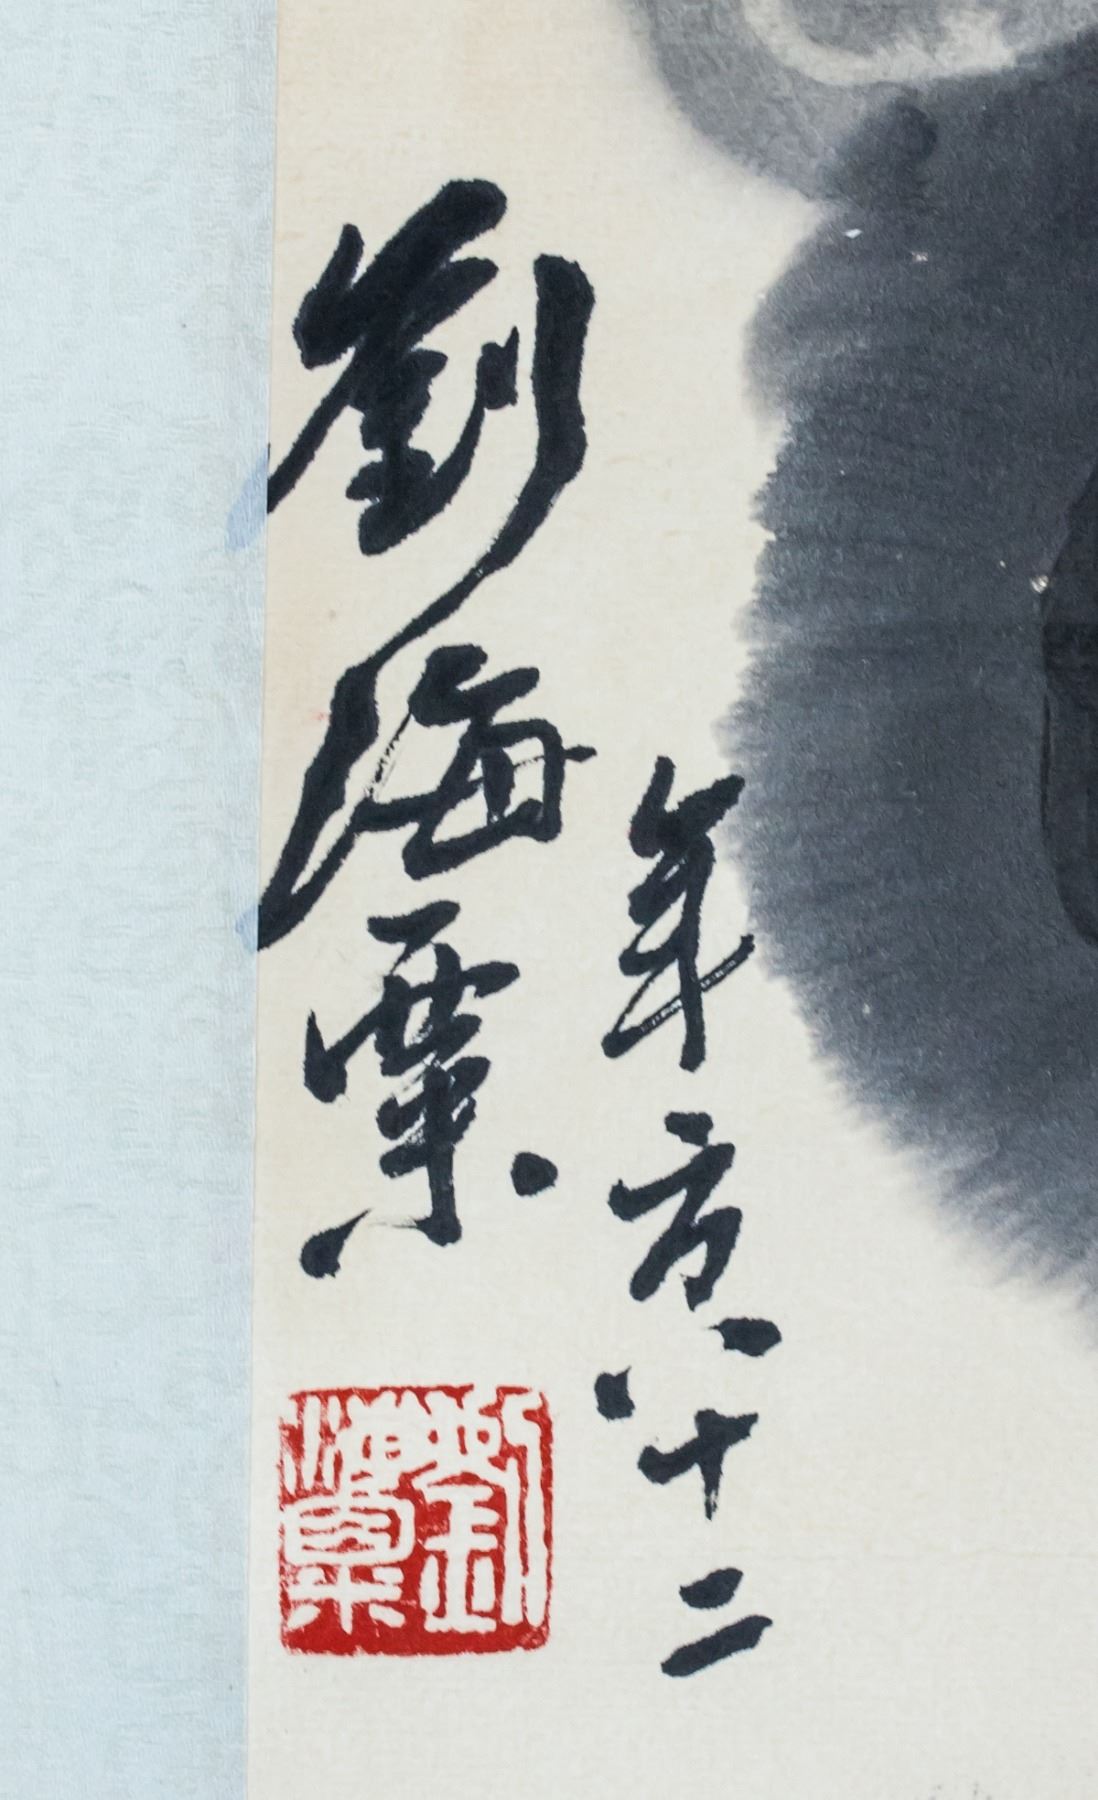 年方八十二
劉海粟
劉海粟